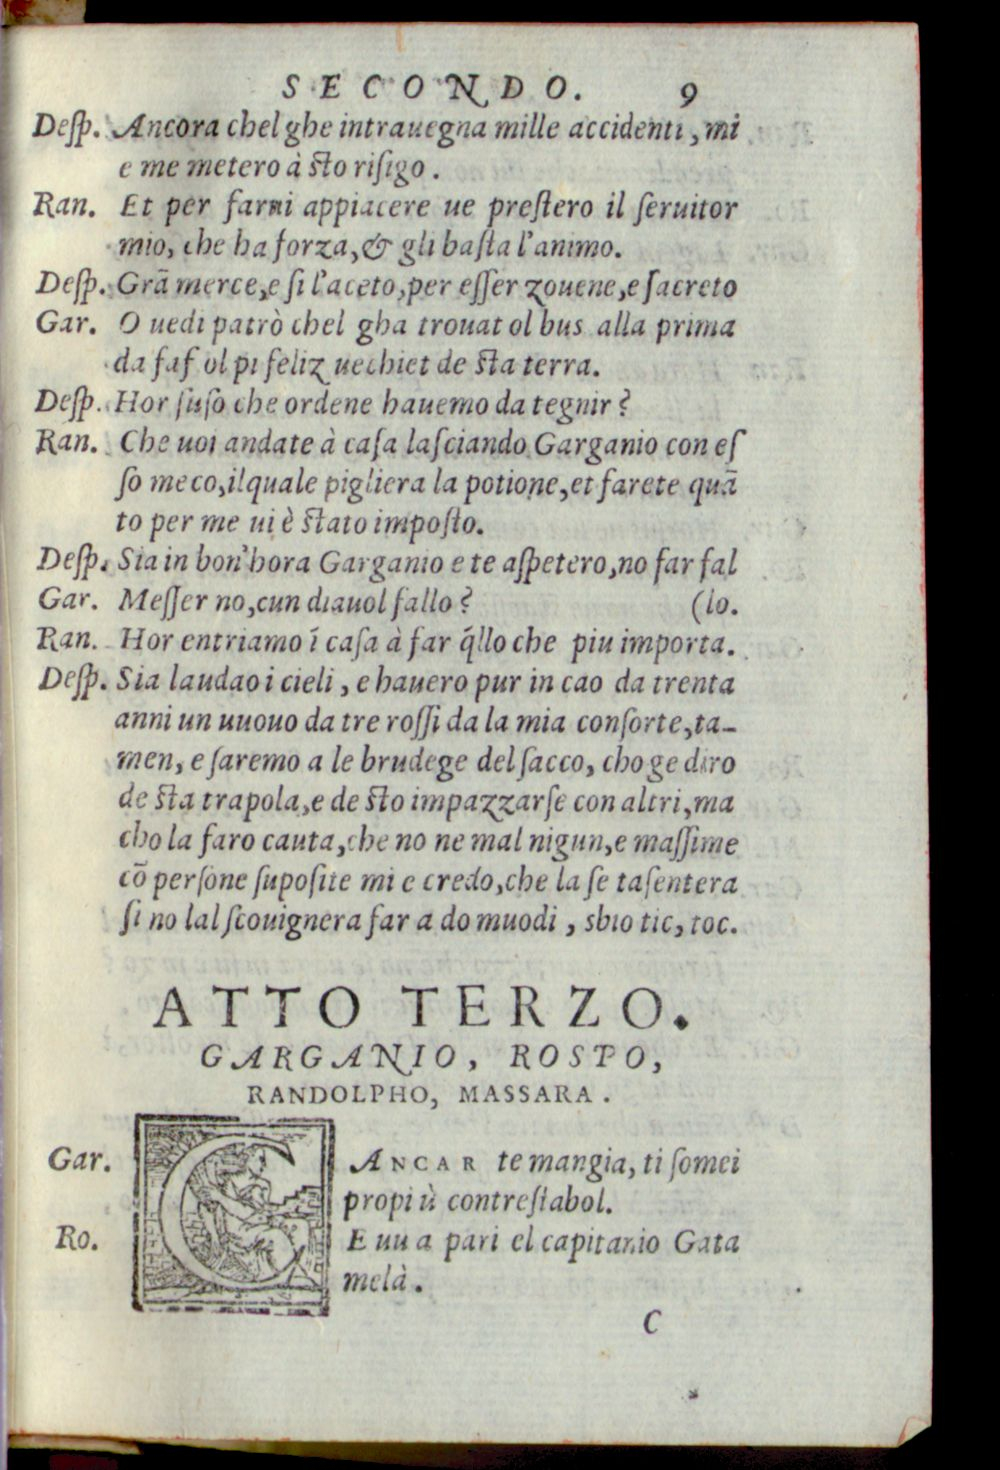 SECONDO. 9
Desp. Ancora chel ghe intrauegna mille accidenti, mi
e me metero à sto risigo.
Ran. Et per farui appiacere ue prestero il seruitor
mio, che ha forza, & gli basta l'animo.
Desp. Grā merce, e si l'aceto, per esser zouene, e sacreto
Gar. O uedi patrò chel gha trouat ol bus alla prima
da faf ol pi feliz uechiet de sta terra.
Desp. Hor suso che ordene hauemo da tegnir?
Ran. Che uoi andate à casa lasciando Garganio con es
so meco, ilquale pigliera la potione, et farete quā
to per me ui è stato imposto.
Desp. Sia in bon'hora Garganio e te aspetero, no far fal
Gar. Messer no, cun diauol fallo? (lo.
Ran. Hor entriamo ī casa à far q̄llo che piu importa.
Desp. Sia laudao i cieli, e hauero pur in cao da trenta
anni un uuouo da tre rossi da la mia consorte, ta-
men, e saremo a le brudege del sacco, cho ge diro
de sta trapola, e de sto impazzarse con altri, ma
cho la faro cauta, che no ne mal nigun, e massime
cō persone suposite mi e credo, che la se tasentera
si no lal scouignera far a do muodi, sbio tic, toc.
ATTO TERZO.
GARGANIO, ROSPO,
RANDOLPHO, MASSARA.
Gar. CANCAR te mangia, ti somei
propi ù contrestabol.
Ro. E uu a pari el capitanio Gata
melà.
C